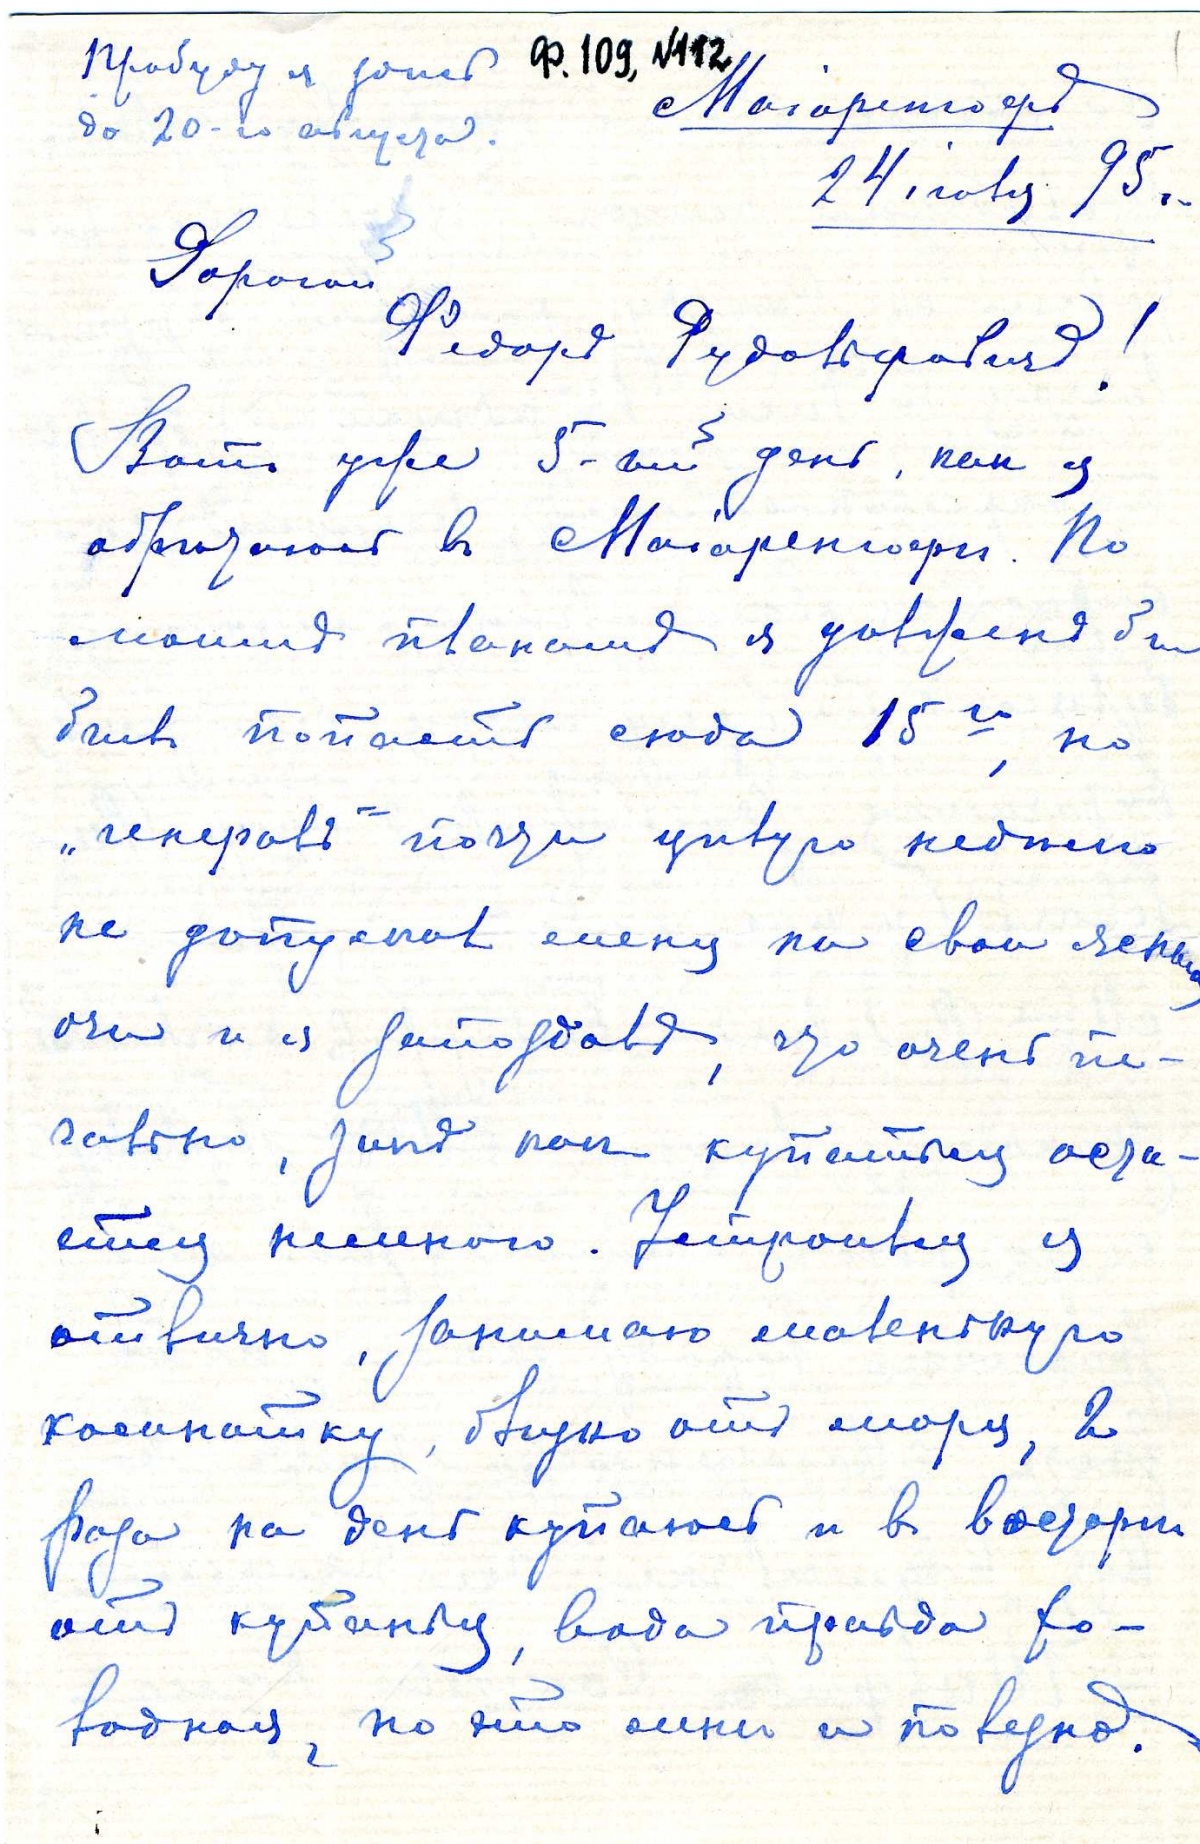 Пробуду я здесь
до 20-го августа.
Ф. 109, №112
Маiоренгофъ
24 iюля 95 г.
Дорогой
Федоръ Рудольфовичъ!
Вотъ уже 5-ый день, как я
обретаюсь въ Маiоренгофѣ. По
моимъ планамъ я долженъ бы
былъ попасть сюда 15го, но
„генералъ“ почти цѣлую недѣлю
не допускалъ меня на свои ясныя
очи и я запоздалъ, что очень пе-
чально, ибо купаться оста-
ется немного. Устроился я
отлично, занимаю маленькую
комнатку, близко отъ моря, 2
раза въ день купаюсь и въ восторгѣ
отъ купанья, вода правда хо-
лодная, но это мнѣ и полезно.